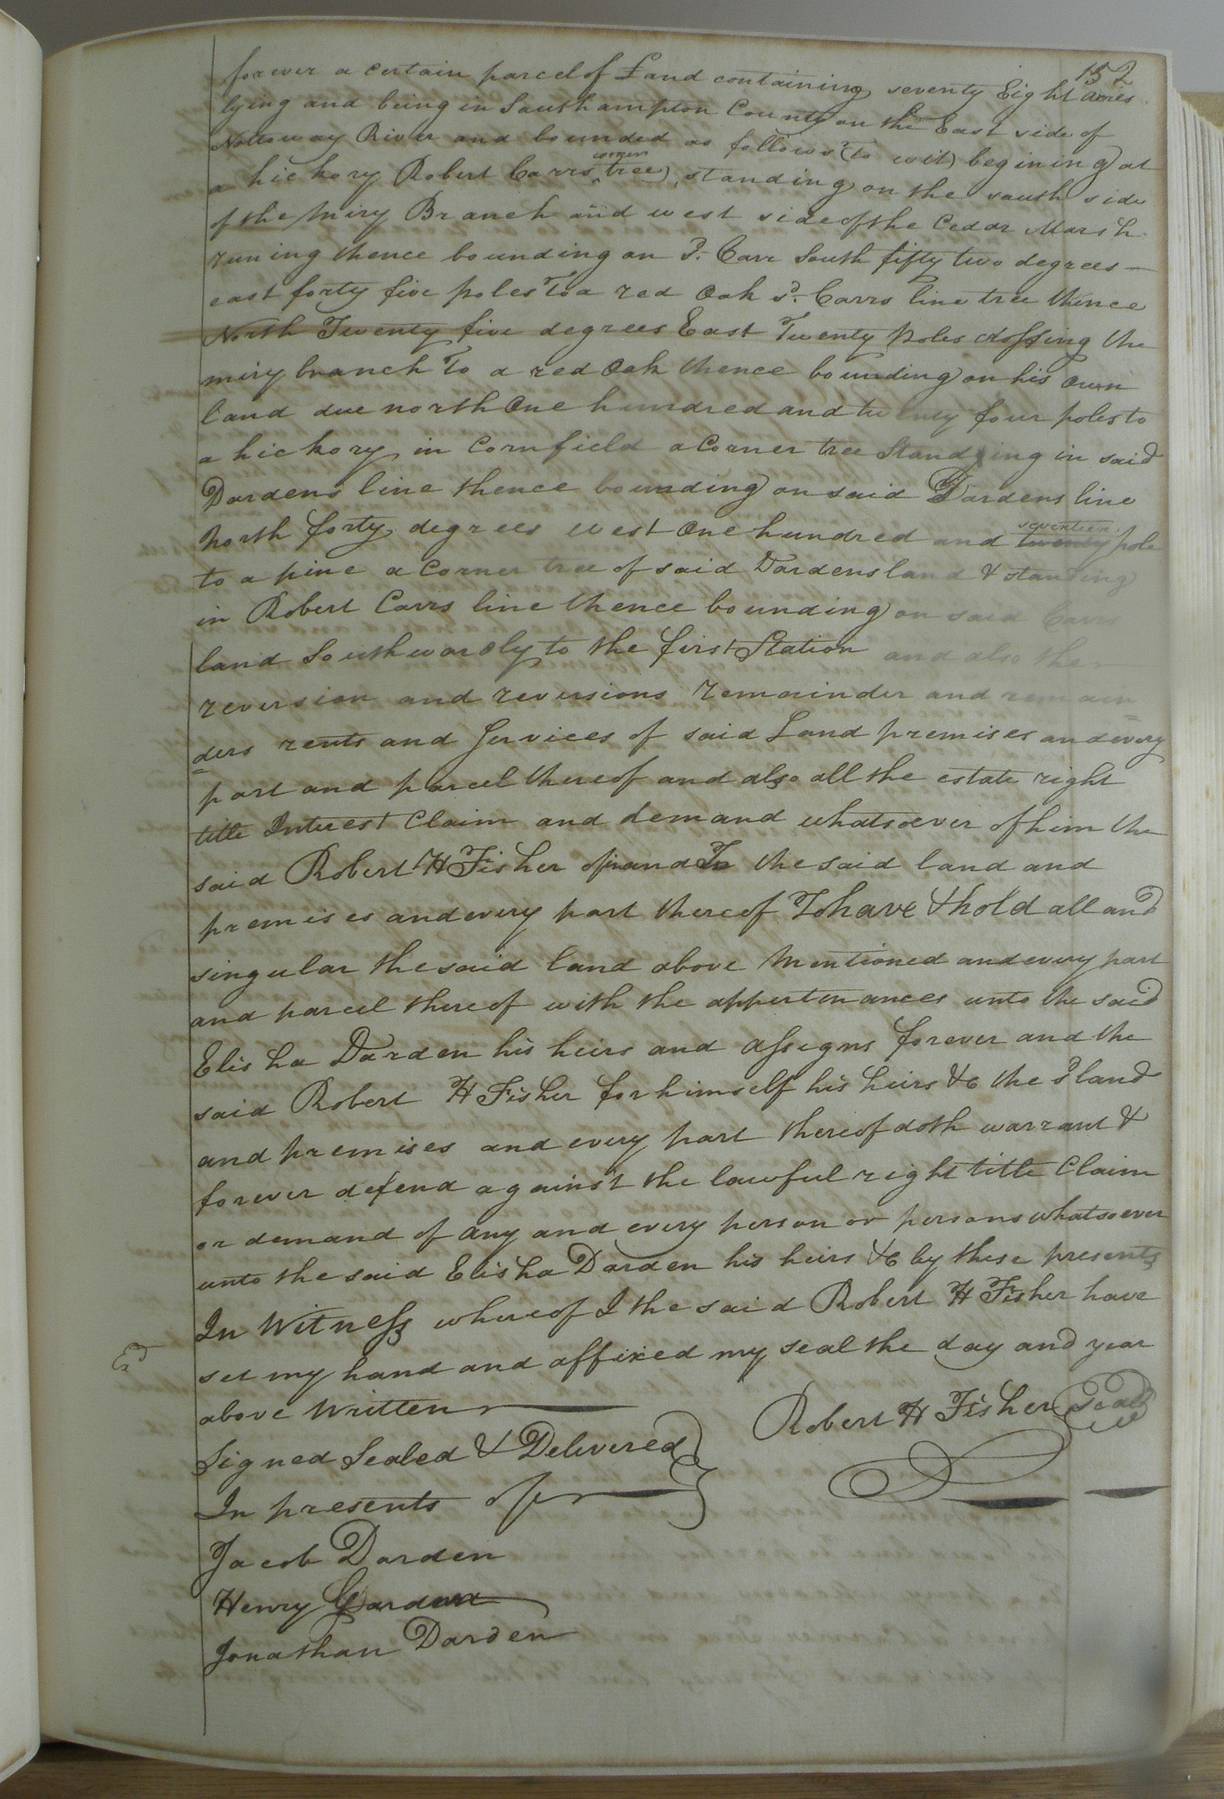 152
forever a certain parcel of Land containing seventy Eight acres
lying and being in Southampton County on the East side of
Nottoway River and bounded as follows (to wit) begining at
a hickory Robert Carrs corner tree, standing on the south side
of the Miry Branch and west side of the Cedar Marsh
runing thence bounding on sd. Carr South fifty two degrees —
east forty five poles To a red Oak sd. Carrs line tree thence
North Twenty five degrees East Twenty poles crossing the
miry branch To a red Oak thence bounding on his own
land due north One hundred and twenty four poles to
a hickory in Cornfield a Corner tree Standing in said
Dardens line thence bounding on said Dardens line
North forty degrees west One hundred and seventeen twenty pole
to a pine a Corner tree of said Dardens land & standing
in Robert Carrs line thence bounding on said Carrs
land Southwardly to the first Station and also the
reversion and reversions remainder and remain
ders rents and Services of said Land premises and every
part and parcel thereof and also all the estate right
title Interest Claim and demand whatsoever of him the
said Robert H Fisher of in and To the said land and
premises and every part thereof To have & hold all and
singular the said land above Mentioned and every part
and parcel thereof with the appertenances unto the said
Elisha Darden his heirs and assigns forever and the
said Robert H Fisher for himself his heirs &c the sd land
and premises and every part thereof doth warrant &
forever defend against the lawful right title Claim
or demand of any and every person or persons whatsoever
unto the said Elisha Darden his heirs &c by these presents
In Witness whereof I the said Robert H Fisher have
set my hand and affixed my seal the day and year
above Written
Robert H Fisher Seal
Signed Sealed & Delivered
In presents of
Jacob Darden
Henry Gardner
Jonathan Darden